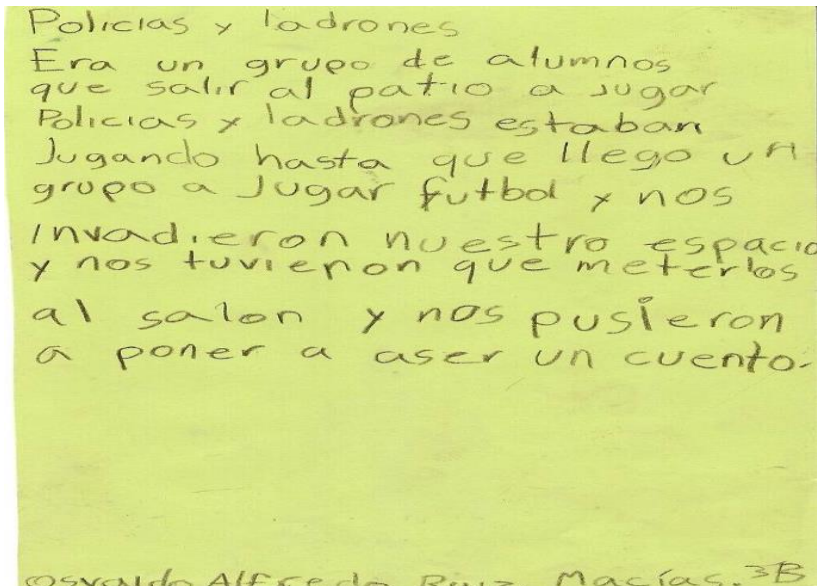 Policias y ladrones
Era un grupo de alumnos
que salir al patio a jugar
Policias y ladrones estaban
Jugando hasta que llego un
grupo a Jugar futbol y nos
invadieron nuestro espacio
y nos tuvieron que meterlos
al salon y nos pusieron
a poner a aser un cuento.
Osvaldo Alfredo Ruiz Macías. 3B